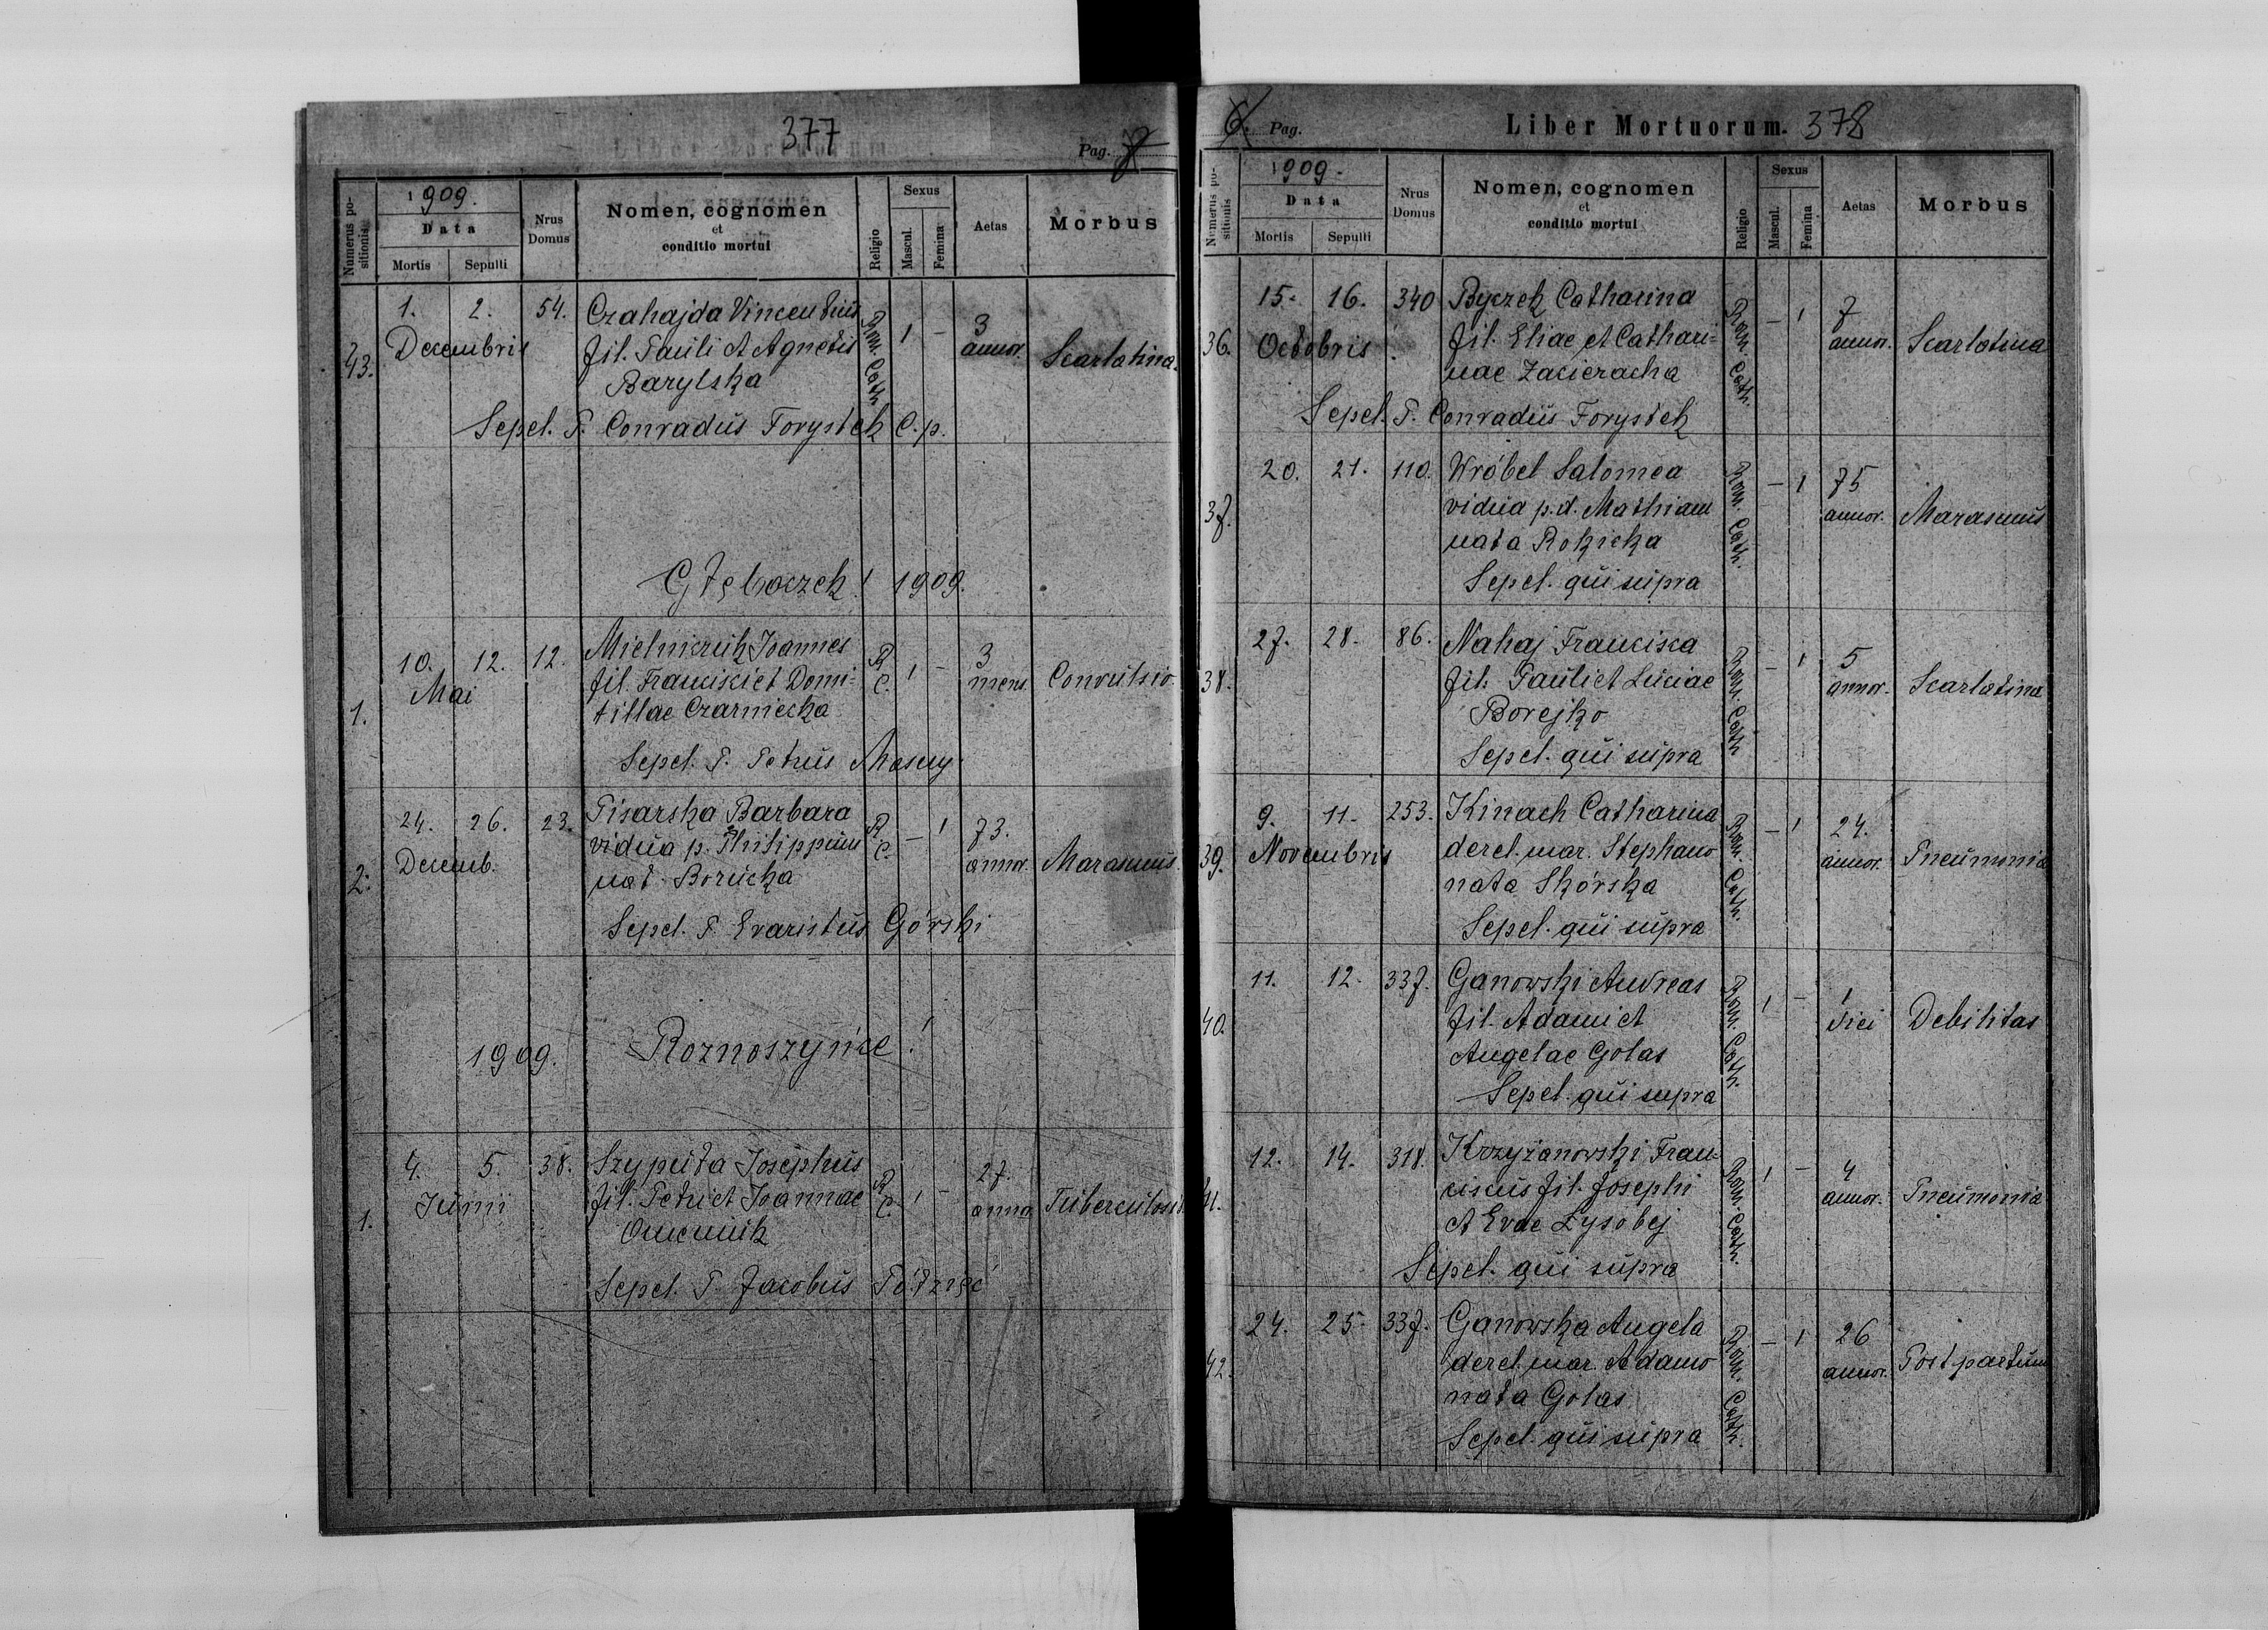 377
Pag. 7
Numerus positionis
1909.
Data
Mortis Sepulti
Nrus Domus
Nomen, cognomen
et
conditio mortui
Religio
Sexus
Mascul. Femina
Aetas
Morbus
43.
1. 2. 54. Czahajda Vincentius Rom. Cath. 1 – 3
Decembris fil. Pauli et Agnetis annor. Scarlatina.
Barylska
Sepel. P. Conradus Forystek C. p.
Głęboczek! 1909.
10. 12. 12. Mielniczuk Joannes R. C. 1 – 3
Mai fil. Francisci et Domi- mens Convulsio
1. tillae Czarniecka
Sepel. P. Petrus
24. 26. 23. Pisarska Barbara R. C. – 1 73.
Decemb. vidua p. Philippum annor. Marasmus.
2. nat. Borucka
Sepel. P. Evaristus Górski
1909. Roznoszyńce!
4. 5. 38. Szypuła Josephus R. C. 1 – 27.
1. Junii fil. Petri et Joannae anno Tuberculosis.
Sepel. P. Jacobus Półzięć
6. Pag.
Liber Mortuorum. 378
Numerus positionis
1909.
Data
Mortis Sepulti
Nrus Domus
Nomen, cognomen
et
conditio mortui
Religio
Sexus
Mascul. Femina
Aetas
Morbus
15. 16. 340 Byczek Catharina Rom. Cath. – 1 7
36. Octobris. fil. Eliae et Cathari- annor. Scarlatina
nae Zacieracha
Sepel. P. Conradus Forystek
20. 21. 110. Wróbel Salomea Rom. Cath. – 1 75
37. vidua p. d. Mathiam annor. Marasmus
nata Rokicka
Sepel. qui supra
27. 28. 86. Nahaj Francisca Rom. Cath. – 1 5
38. fil. Pauli et Luciae annor. Scarlatina
Borejko
Sepel. qui supra
9. 11. 253. Kinach Catharina Rom. Cath. – 1 24.
39. Novembris derel. mar. Stephano annor. Pneumonia
nata Skórska
Sepel. qui supra
11. 12. 337. Ganowski Andreas Rom. Cath. 1 – 1
40. fil. Adami et diei Debilitas
Angelae Golas
Sepel. qui supra
12. 14. 318. Krzyżanowski Fran- Rom. Cath. 1 – 4
41. ciscus fil. Josephi annor. Pneumonia
et Evae Łysobej
Sepel. qui supra
24. 25. 337. Ganowska Angela Rom. Cath. – 1 26
42. derel. mar. Adamo annor. Post partum
nata Golas
Sepel. qui supra